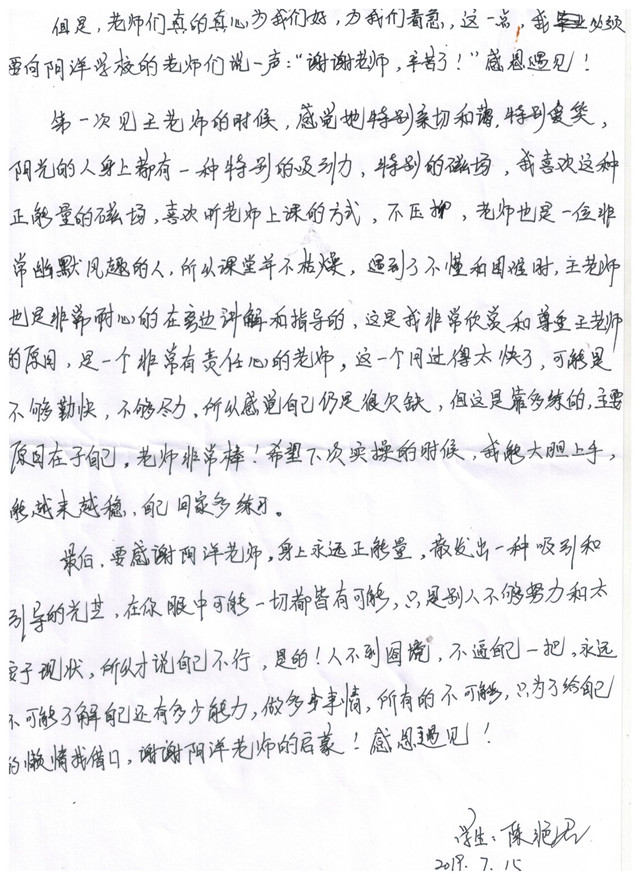 但是，老师们真的真心为我们好，为我们着急，这一点，我必须
要向阴洋学校的老师们说一声："谢谢老师，辛苦了！"感恩遇见！
第一次见王老师的时候，感觉她特别亲切和蔼，特别爱笑，
阳光的人身上都有一种特别的吸引力，特别的磁场，我喜欢这种
正能量的磁场，喜欢听老师上课的方式，不压抑，老师也是一位非
常幽默风趣的人，所以课堂并不枯燥，遇到了不懂和困难时，王老师
也是非常耐心的在旁边讲解和指导的，这是我非常欣赏和尊重王老师
的原因，是一个非常有责任心的老师。这一个月过得太快了，可能是
不够勤快，不够尽力。所以感觉自己仍是很欠缺，但这是靠多练的，主要
原因在于自己。老师非常棒！希望下次实操的时候，我能大胆上手，
能越来越稳，自己回家多练习。
最后，要感谢阴洋老师，身上永远正能量，散发出一种吸引和
引导的光芒，在你眼中可能一切都皆有可能，只是别人不够努力和太
安于现状，所以才说自己不行，是的！人不到困境，不逼自己一把，永远
不可能了解自己还有多少能力，做多少事情，所有的不可能，只为了给自己
的懒惰找借口，谢谢阴洋老师的启蒙！感恩遇见！
学生：陈艳君
2019.7.15